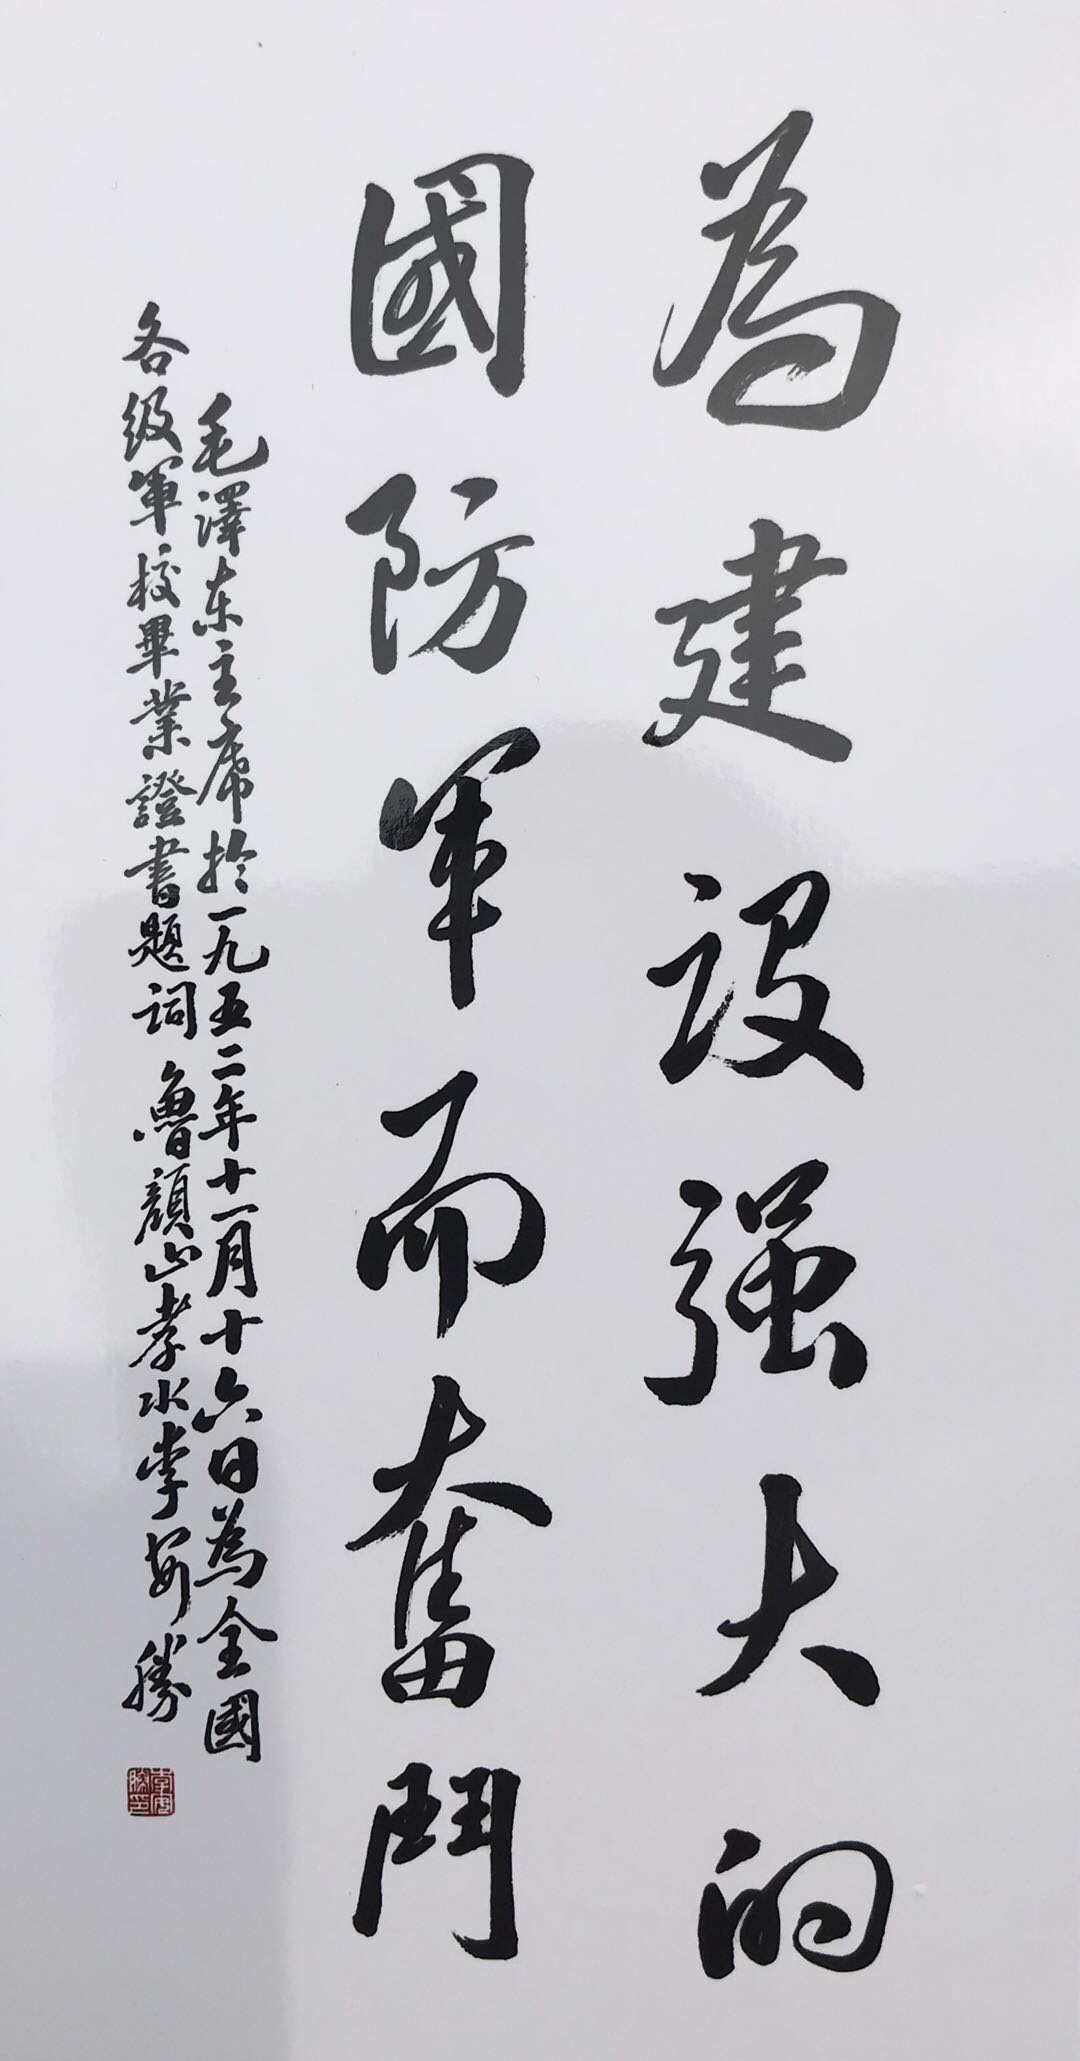 為建設强大的
國防军而奮鬥
毛澤东主席於一九五二年十一月十六日為全國
各级軍校畢業證書題詞 魯顔山孝水李安勝
李安勝印